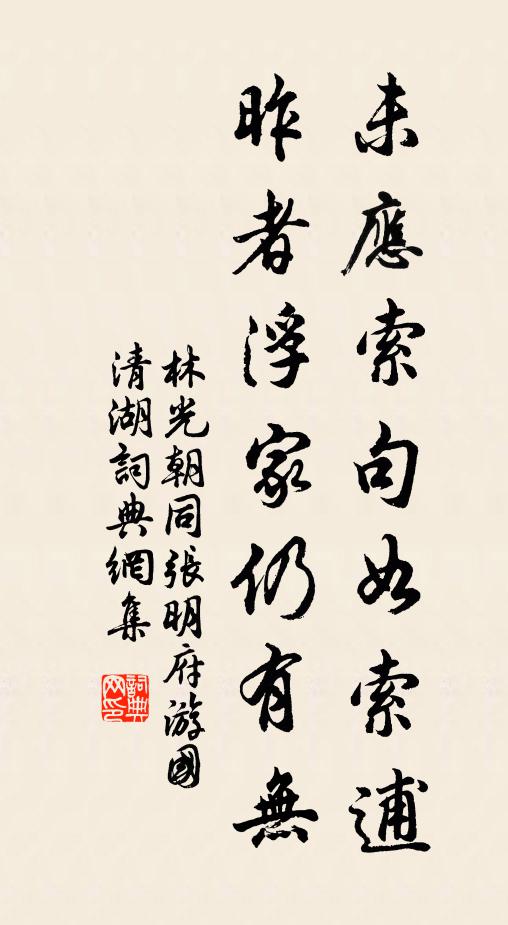 未應索句如索逋
昨者浮家仍有無
林光朝同張明府游國
清湖詞典網集
詞典網印